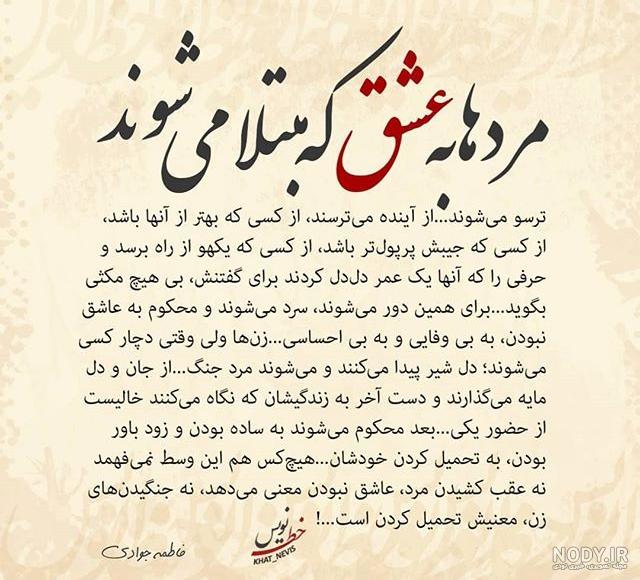 مردها به عشق که مبتلا می شوند
ترسو می‌شوند...از آینده می‌ترسند، از کسی که بهتر از آنها باشد،
از کسی که جیبش پرپول‌تر باشد، از کسی که یکهو از راه برسد و
حرفی را که آنها یک عمر دل‌دل کردند برای گفتنش، بی هیچ مکثی
بگوید...برای همین دور می‌شوند، سرد می‌شوند و محکوم به عاشق
نبودن، به بی وفایی و به بی احساسی...زن‌ها ولی وقتی دچار کسی
می‌شوند؛ دل شیر پیدا می‌کنند و می‌شوند مرد جنگ...از جان و دل
مایه می‌گذارند و دست آخر به زندگیشان که نگاه می‌کنند خالیست
از حضور یکی...بعد محکوم می‌شوند به ساده بودن و زود باور
بودن، به تحمیل کردن خودشان...هیچ‌کس هم این وسط نمی‌فهمد
نه عقب کشیدن مرد، عاشق نبودن معنی می‌دهد، نه جنگیدن‌های
زن، معنیش تحمیل کردن است...!
خط نویس
KHAT_NEVIS
فاطمه جوادی
NODY.IR
مجله تصویری، خبری نودی